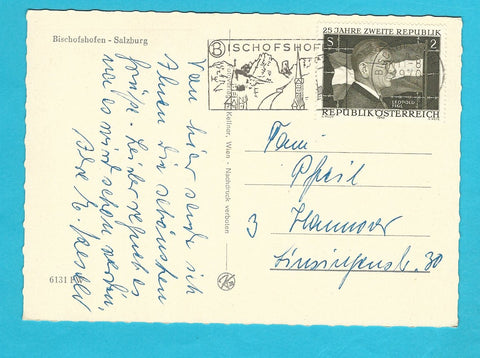 Bischofshofen - Salzburg
BISCHOFSHOF
25 JAHRE ZWEITE REPUBLIK
S 2
LEOPOLD
FIGL
REPUBLIK ÖSTERREICH
Von hier sende ich
Ihnen die schönsten
Grüße. Leider regnet es
es wird schon werden.
Kellner, Wien - Nachdruck verboten
Fam.
Pfeil
3 Hannover
30
6131